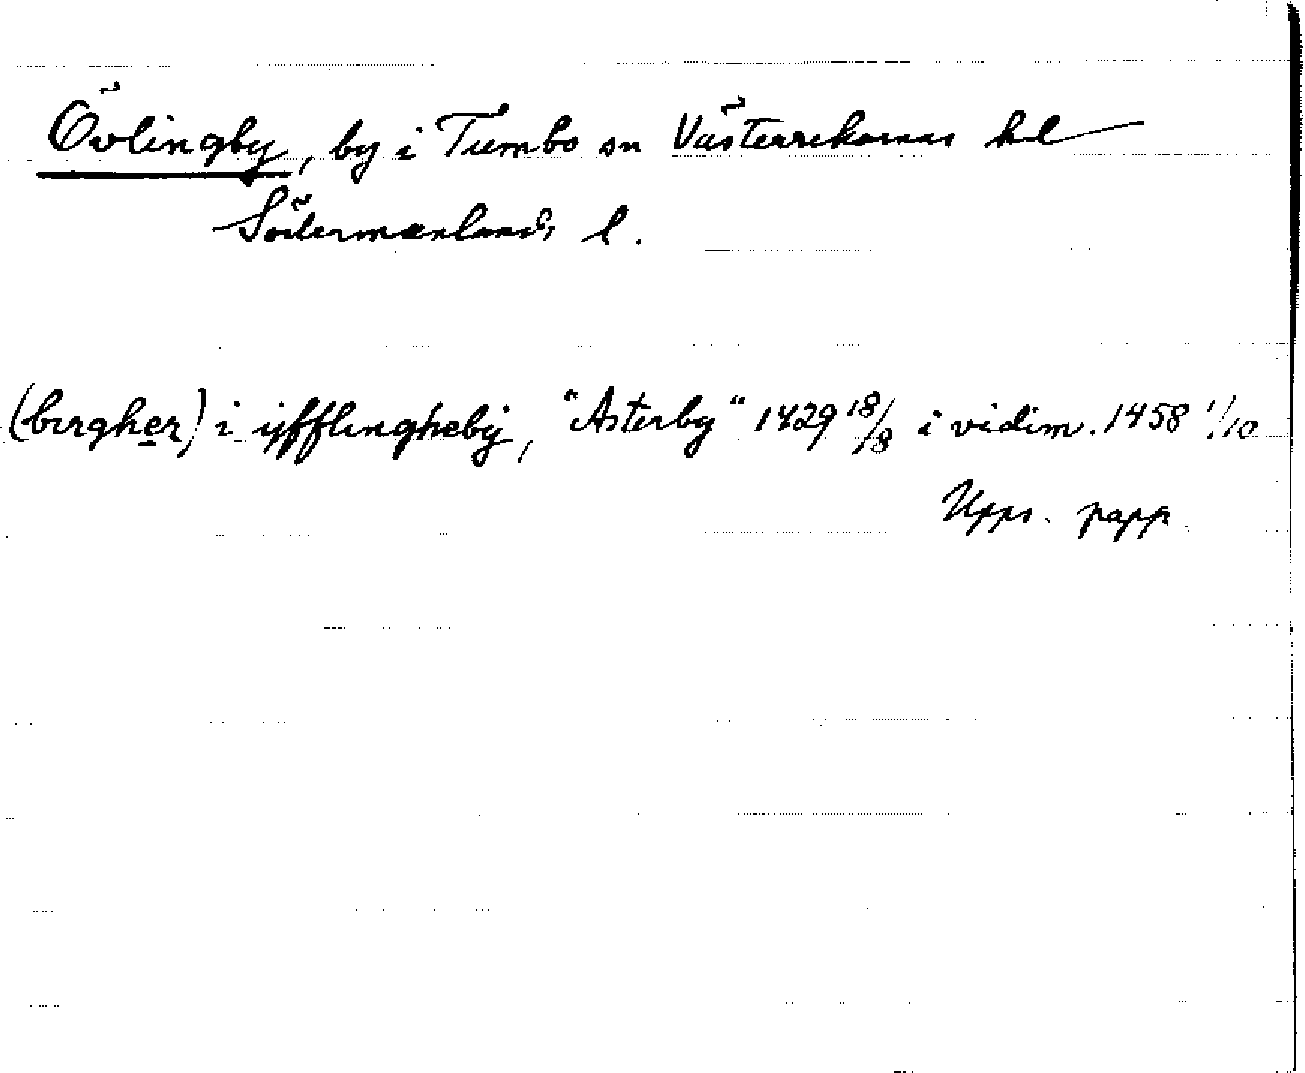 Övlingby, by i Tumbo sn Västerrekarnes hd
Södermanlands l.
(birgher) i ijfflingheby, "Asterby" 1429 18/8 i vidim. 1458 1/10
Upps. papp.